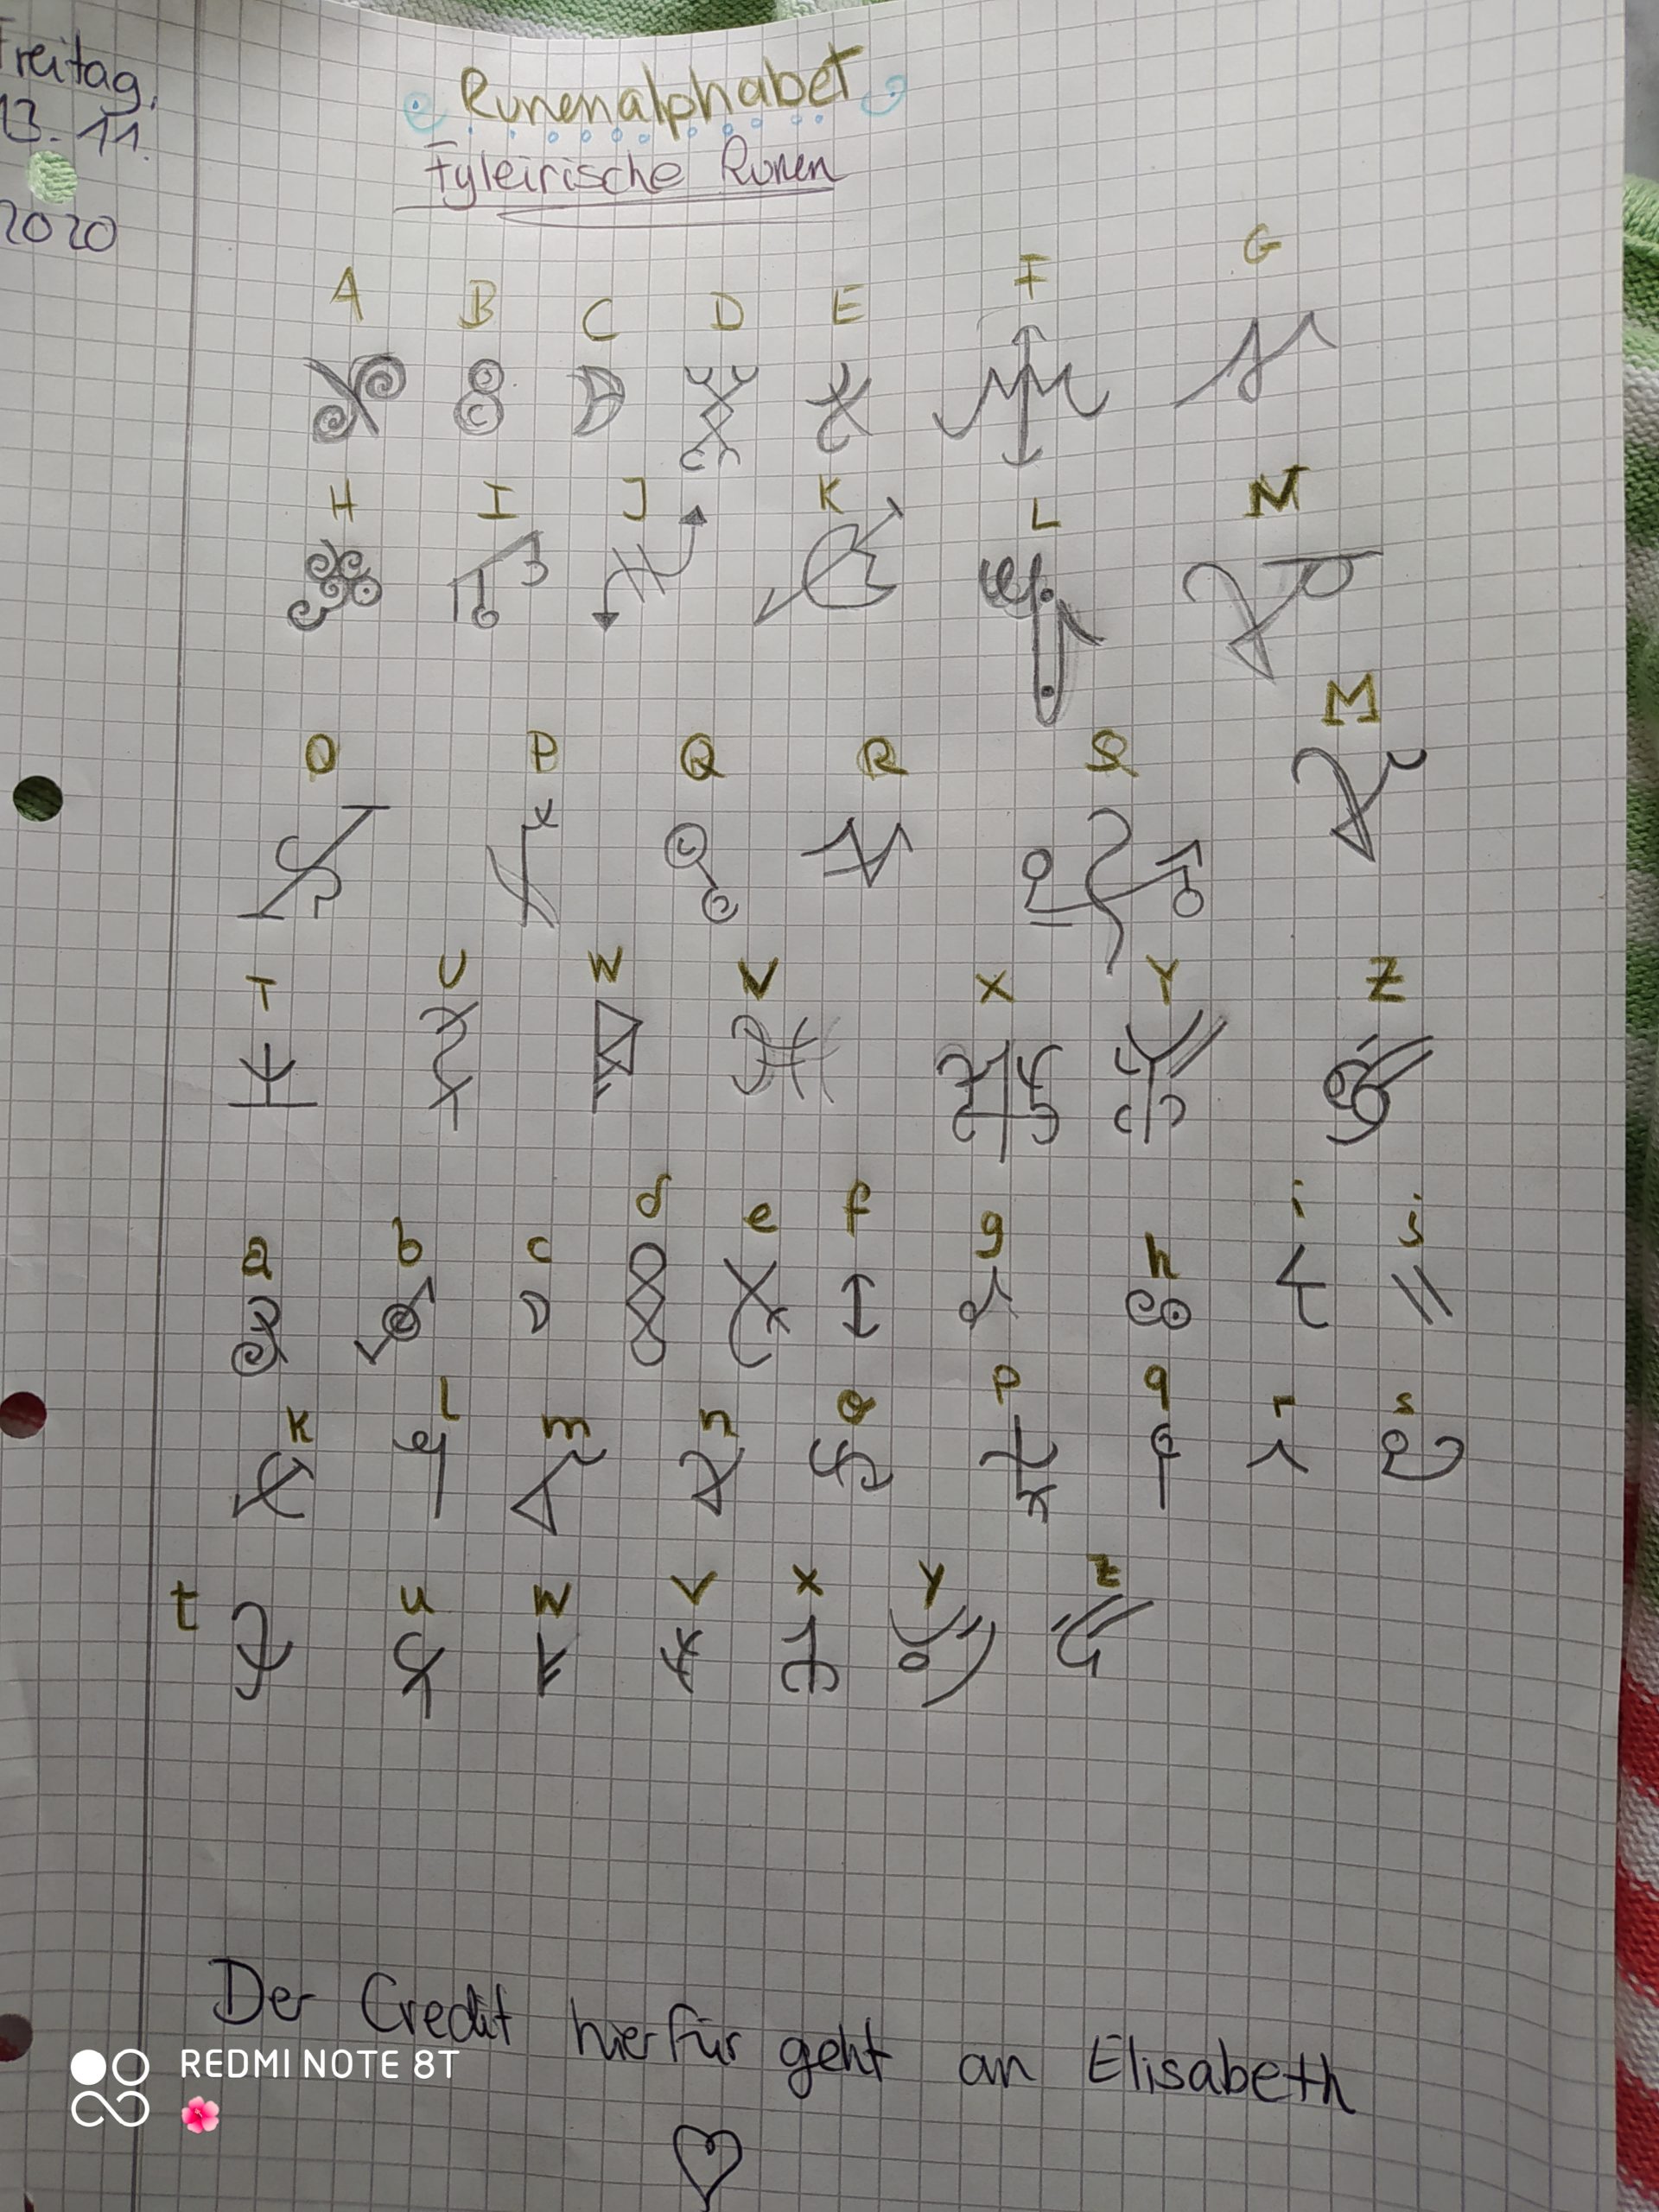 Freitag,
13.11.
2020
Runenalphabet
Fyleirische Runen
A B C D E F G
H I J K L N
M
O P Q R S
T U W V X Y Z
a b c d e f g h i j
k l m n o p q r s
t u w v x y z
Der Credit hierfür geht an Elisabeth
REDMI NOTE 8T